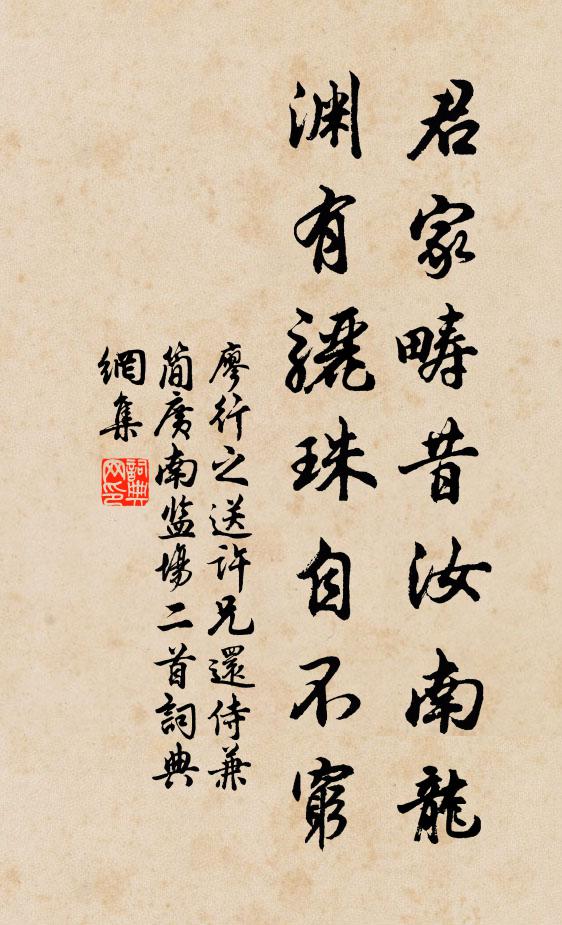 君家疇昔汝南龍
淵有驪珠自不窮
廖行之送許兄還侍兼
简廣南监場二首詞典
網集
詞典
网印